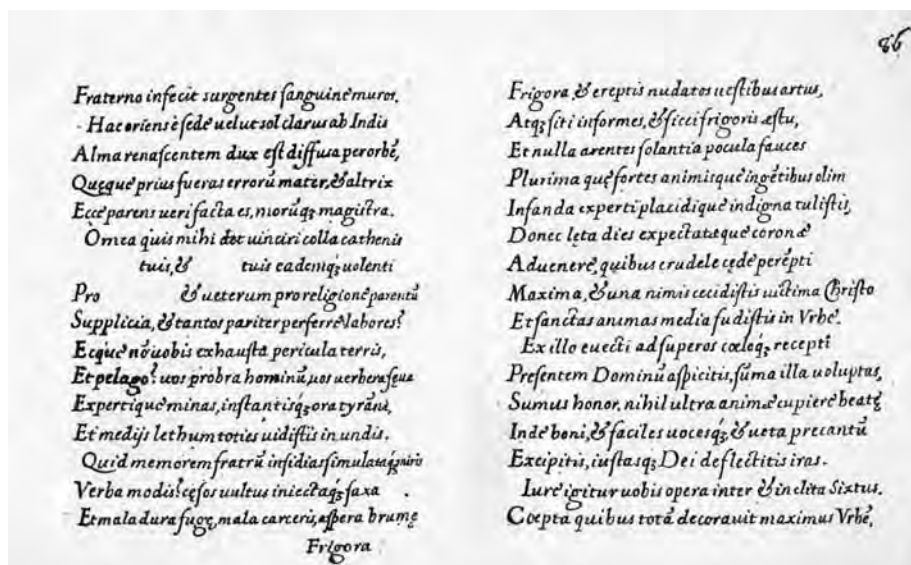 Fraterno infecit surgentes sanguinè muros.
Hac oriens è sede uelut sol clarus ab Indis
Alma renascentem dux est diffusa per orbē,
Quęque prius fueras errorū mater, & altrix
Ecce parens ueri facta es, morūq; magistra.
O mea quis mihi det uinciri colla cathenis
tuis, & tuis eademq; uolenti
Pro & ueterum pro religione parentū
Supplicia, & tantos pariter perferre labores?
Ecquè nō uobis exhausta pericula terris,
Et pelago? uos probra hominū, uos uerbera sęua
Expertiquè minas, instantisq; ora tyrāni,
Et medijs lethum toties uidistis in undis.
Quid memorem fratrū insidias simulataq; miris
Verba modis? cęsos uultus iniectaq; saxa
Et mala dura fugę, mala carceris, aspera brumę
Frigora
86
Frigora & ereptis nudatos uestibus artus,
Atq; siti informes, & sicci frigoris æstu,
Et nulla arentes solantia pocula fauces
Plurima quę fortes animisquè ingētibus olim
Infanda experti placidiquè indigna tulistis,
Donec lęta dies expectatæquè coronæ
Aduenerè, quibus crudele cędè perēpti
Maxima, & una nimis cecidistis uictima Christo
Et sanctas animas media fudistis in Vrbè.
Ex illo euecti ad superos cœleq; recepti
Presentem Dominū aspicitis, sūma illa uoluptas,
Sumus honor, nihil ultra animæ cupierè beatę
Indè boni, & faciles uocesq;, & uota precantū
Excipitis, iustasq; Dei deflectitis iras.
Iurè igitur uobis opera inter & inclita Sixtus.
Cœpta quibus totā decorauit maximus Vrbē,